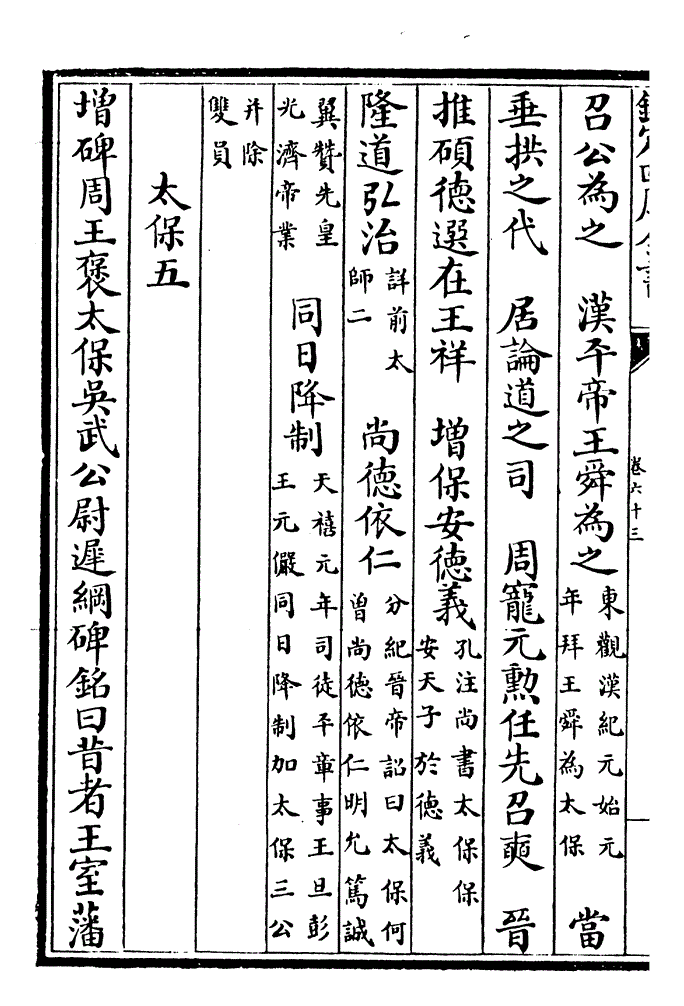 欽定四庫全書
卷六十三
召公為之　漢平帝王舜為之東觀漢紀元始元年拜王舜為太保　當
垂拱之代　居論道之司　周寵元勲任先召奭　晉
推碩德選在王祥　増保安德義孔注尚書太保保安天子於德義
隆道弘治詳前太師二　尚德依仁分紀晉帝詔曰太保何曾尚德依仁明允篤誠
翼贊先皇光濟帝業　同日降制天禧元年司徒平章事王旦彭王元儼同日降制加太保三公
并除雙員
太保五
増碑周王褒太保吳武公尉遲綱碑銘曰昔者王室藩